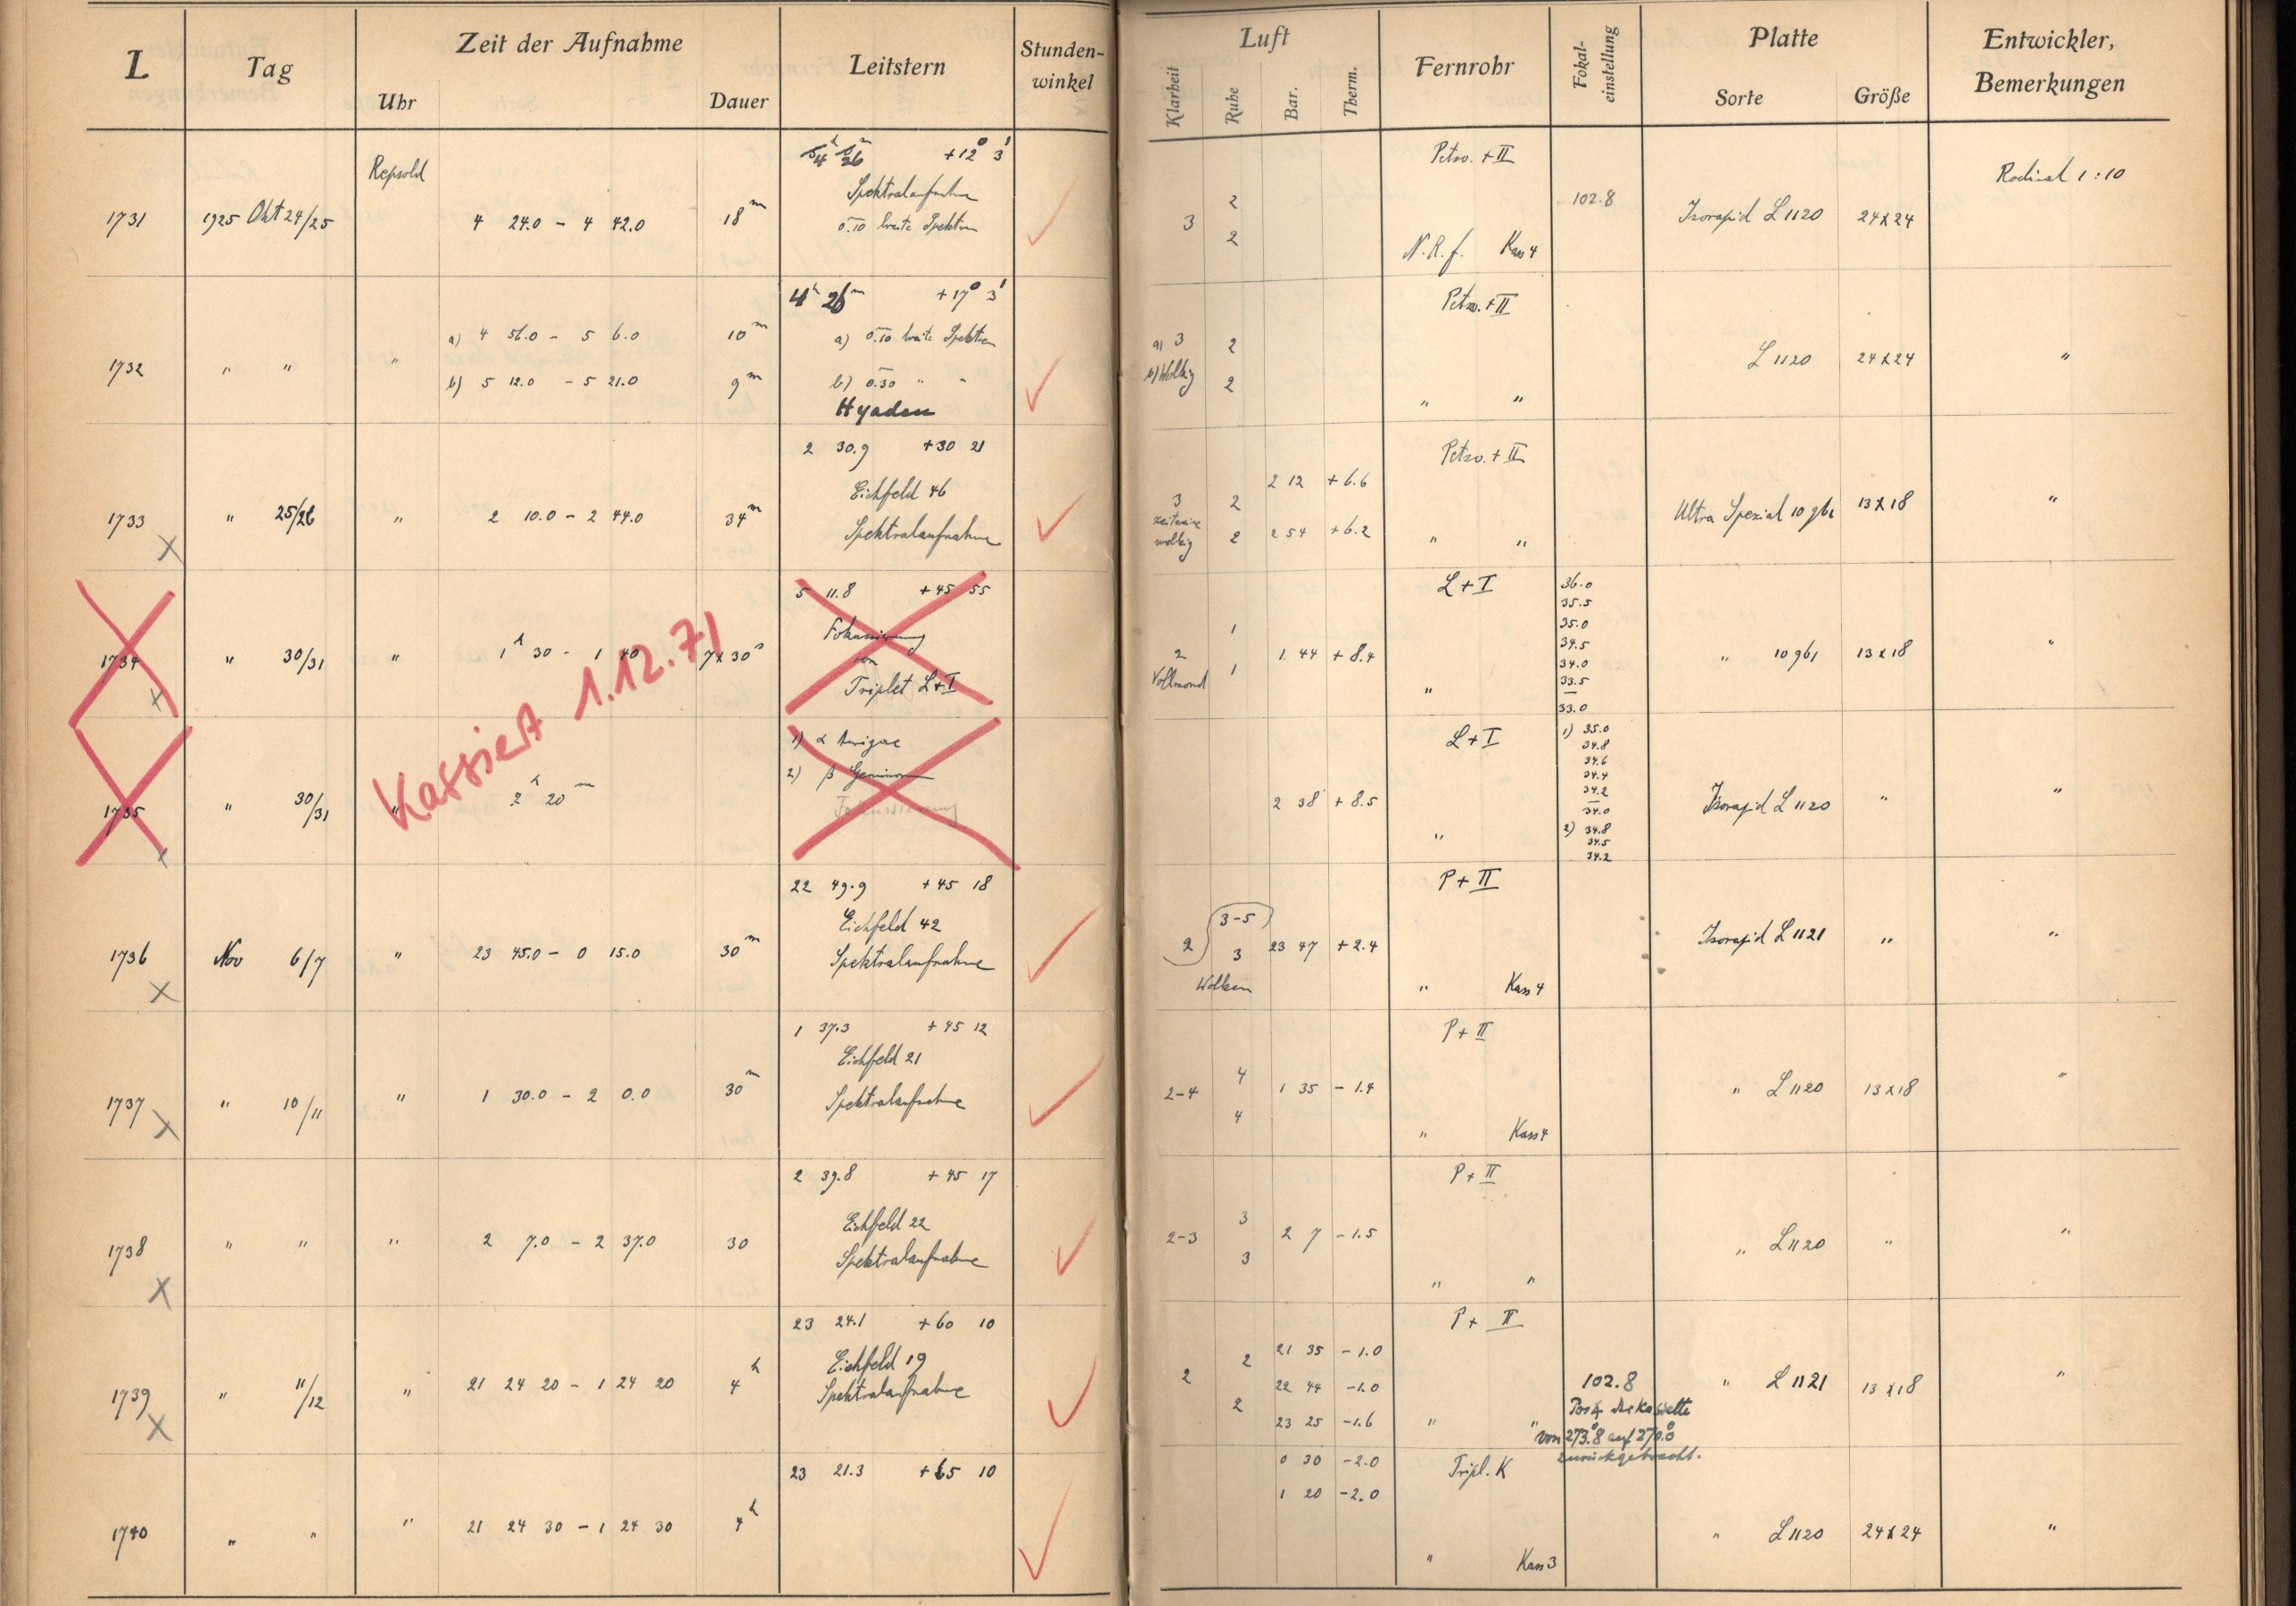 L Tag Zeit der Aufnahme Leitstern Stunden-
winkel
Uhr Dauer
Luft Fernrohr Fokal-
einstellung Platte Entwickler,
Bemerkungen
Klarheit Ruhe Bar. Therm. Sorte Größe
Repsold +12° 3'
Spektralaufnahme
1731 1925 Okt 24/25 4 24.0 - 4 42.0 18m
breite Spektren
Petzv. + II Rodinal 1:10
3 2 102.8 Isorapid L 1120 24x24
2 N.R.f. Kass 4
4h 26m +17° 3'
a) 4 56.0 - 5 6.0 10m a) breite Spektren
1732 " " "
b) 5 12.0 - 5 21.0 9m b) " "
Hyaden
Petzv. + II
a) 3 2
b) Wolkig 2 L 1120 24x24 "
" "
2 30.9 +30 21
Eichfeld 46
1733 " 25/26 " 2 10.0 - 2 44.0 34m
Spektralaufnahme
X
Petzv. + II
2 12 +6.6
3 2 Ultra Spezial 13x18 "
zeitweise
wolkig 2 2 54 +6.2 " "
5 11.8 +45 55
Fokussierung
1734 " 30/31 " 1h 30 - 1 40 7x30s von
Triplet L+I
X
L + I 36.0
35.5
35.0
1 34.5
2 1 44 +8.4 34.0 " 13x18 "
Vollmond 1 " 33.5
33.0
Kassiert 1.12.71
1) α Aurigae
2) β Geminorum
1735 " 30/31 " 2h 20m Fokussierung
x
L + I 1) 35.0
34.8
34.6
34.4
2 38 +8.5 34.2 Isorapid L 1120 " "
34.0
" 2) 34.8
34.5
34.2
22 49.9 +45 18
Eichfeld 42
1736 Nov 6/7 " 23 45.0 - 0 15.0 30m Spektralaufnahme
X
P + II
3-5
2 3 23 47 +2.4 Isorapid L 1121 " "
Wolken " Kass 4
1 37.3 +45 12
Eichfeld 21
1737 " 10/11 " 1 30.0 - 2 0.0 30m Spektralaufnahme
X
P + II
4
2-4 1 35 -1.4 " L 1120 13x18 "
4
" Kass 4
2 39.8 +45 17
Eichfeld 22
1738 " " " 2 7.0 - 2 37.0 30 Spektralaufnahme
X
P + II
3
2-3 2 7 -1.5 " L 1120 " "
3
" "
23 24.1 +60 10
Eichfeld 19
1739 " 11/12 " 21 24 20 - 1 24 20 4h Spektralaufnahme
X
P + II
2 21 35 -1.0
2 22 44 -1.0 102.8 " L 1121 13x18 "
2 23 25 -1.6 " "
der Kassette
von 273.8 auf 270.0
zurückgebracht.
0 30 -2.0
1 20 -2.0
23 21.3 +65 10
1740 " " " 21 24 30 - 1 24 30 4h
Tripl. K
" L 1120 24x24 "
" Kass 3